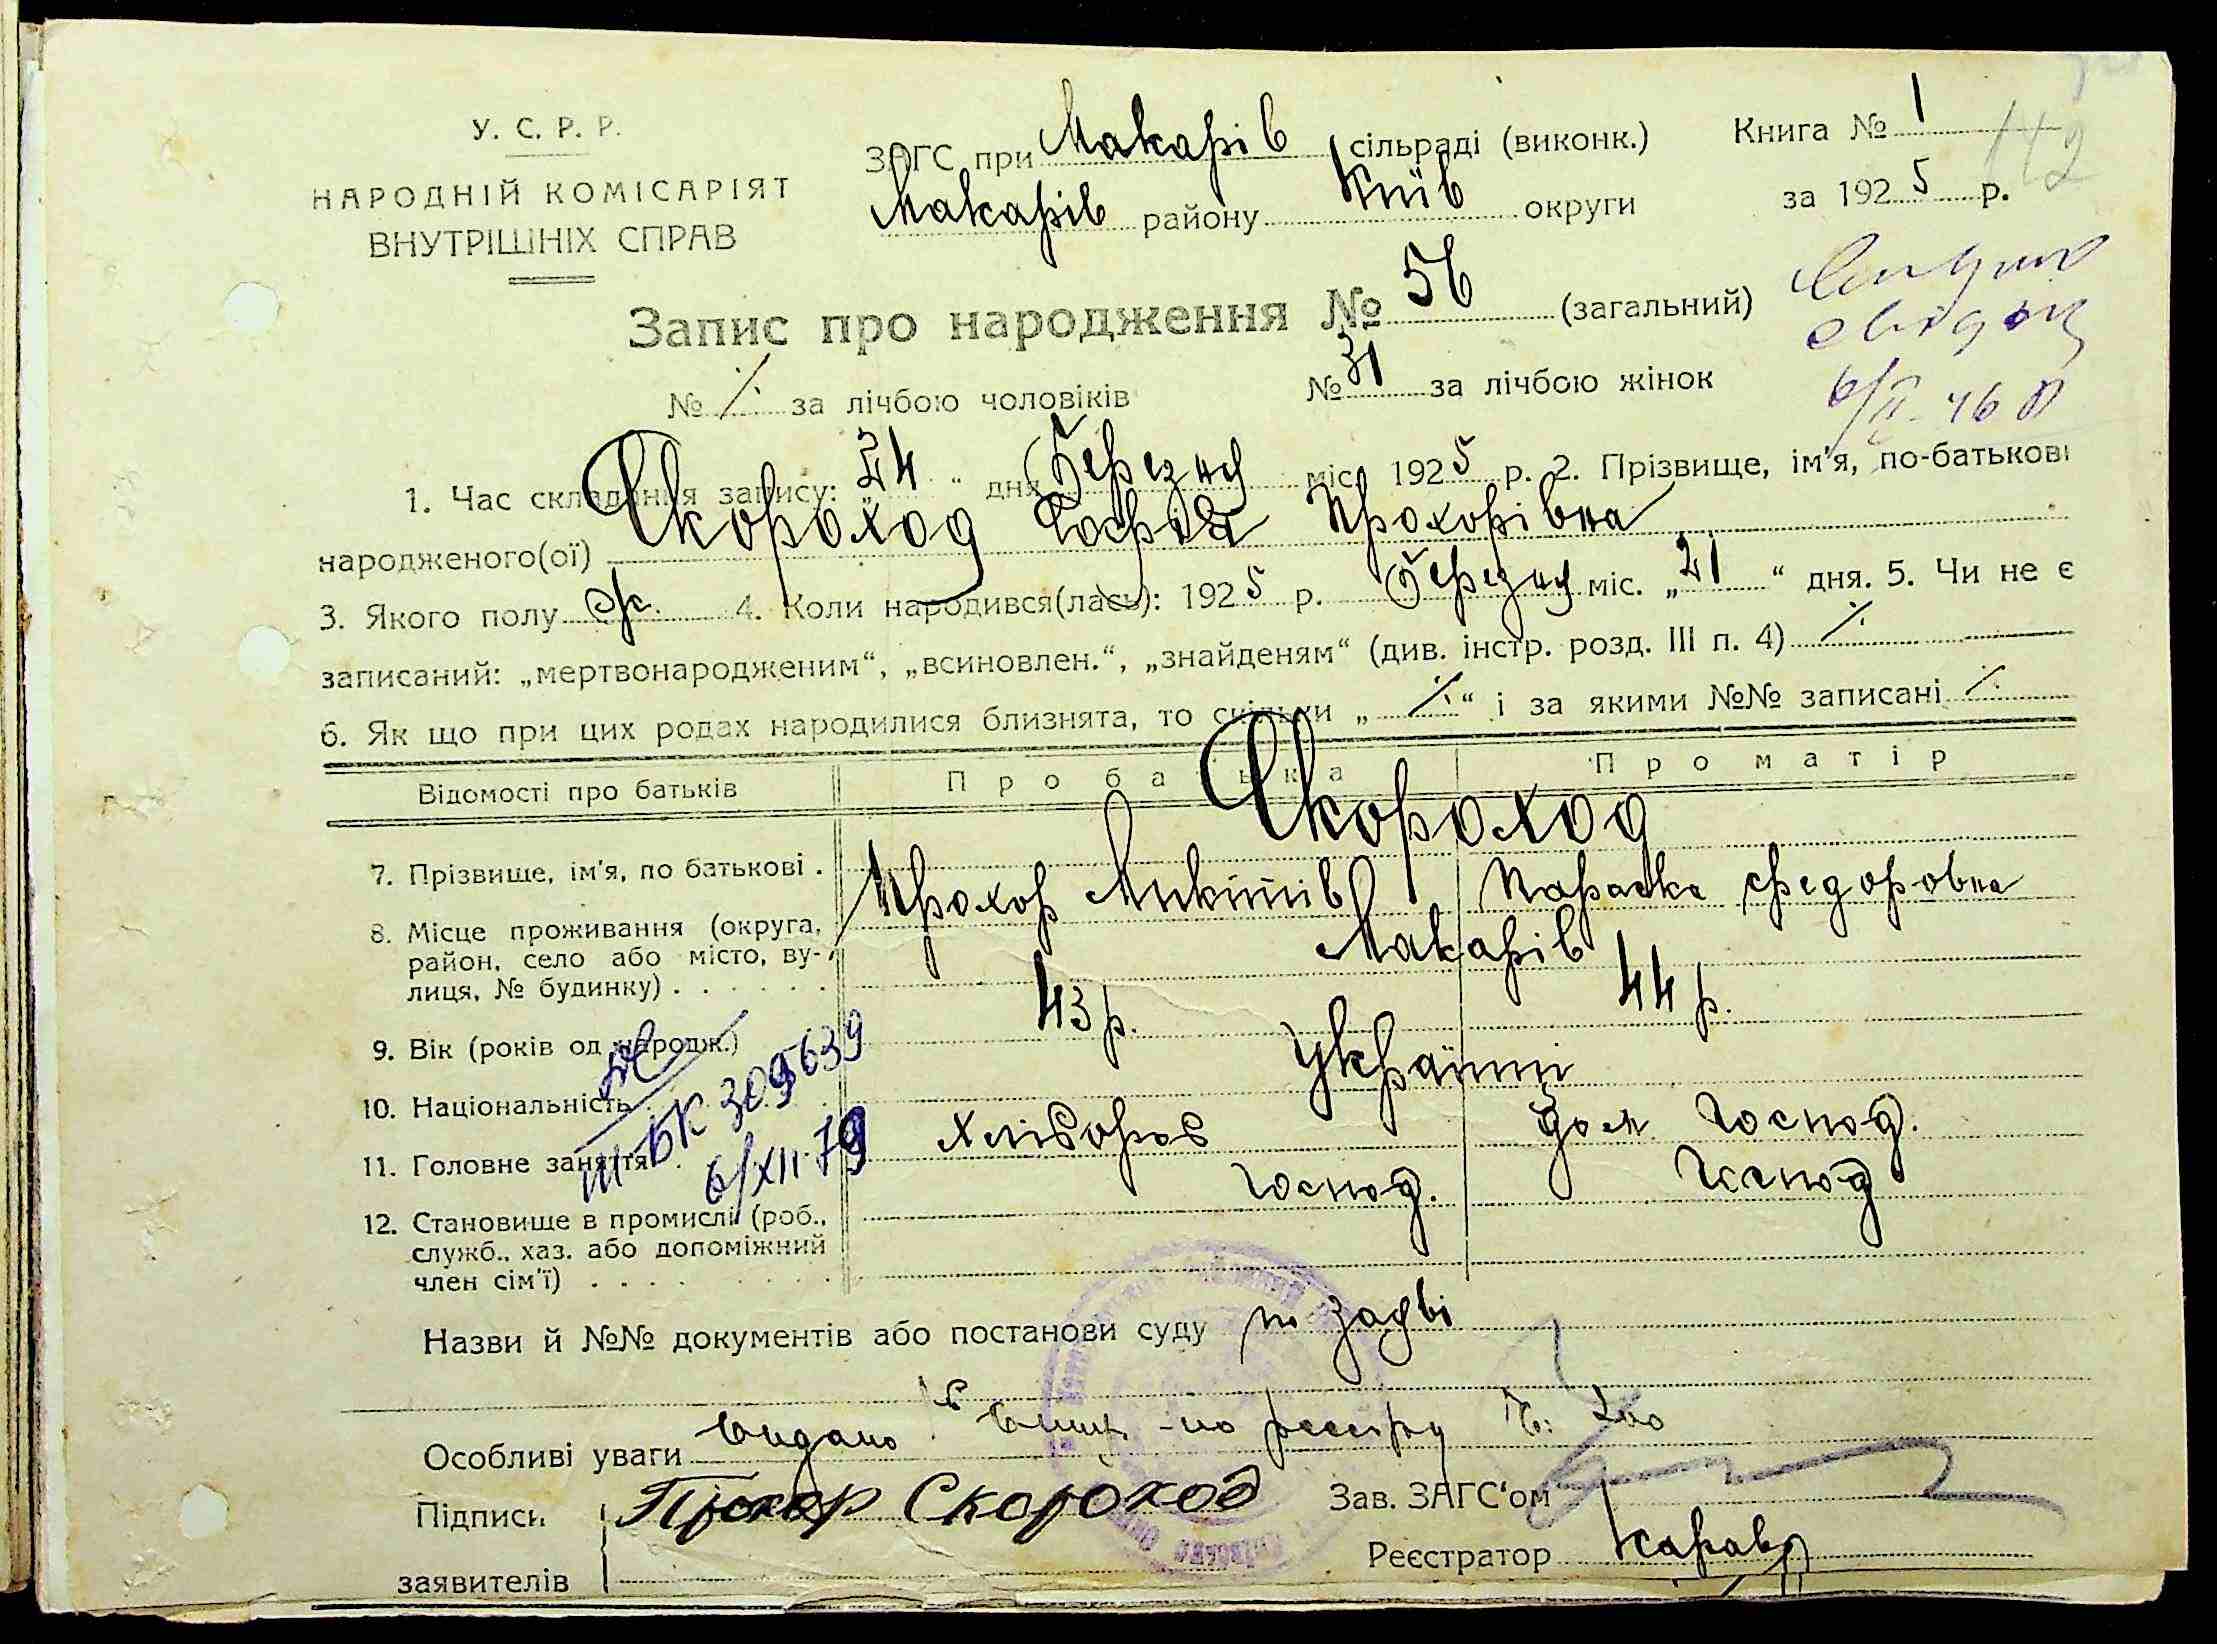 У. С. Р. Р.
НАРОДНІЙ КОМІСАРІЯТ
ВНУТРІШНІХ СПРАВ
ЗАГС при Макарів сільраді (виконк.)
Макарів району Київ округи
Книга № 1
за 1925 р.
142
Запис про народження № 56 (загальний)
№ ٪ за лічбою чоловіків № 31 за лічбою жінок
6/II-46
1. Час складання запису: „24“ дня Березня міс. 1925 р. 2. Прізвище, ім'я, по-батькові
народженого(ої) Скороход Софія Прохорівна
3. Якого полу ж. 4. Коли народився(лась): 1925 р. Березня міс. „21“ дня. 5. Чи не є
записаний: „мертвонародженим“, „всиновлен.“, „знайденям“ (див. інстр. розд. III п. 4) ٪
6. Як що при цих родах народилися близнята, то скільки „٪“ і за якими №№ записані ٪
Відомості про батьків Про батька Про матір
Скороход
7. Прізвище, ім'я, по батькові . Прохор Микитів Параска Федоровна
8. Місце проживання (округа, район, село або місто, вулиця, № будинку) . . . . . . Макарів
9. Вік (років од народж.) 43 р. 44 р.
10. Національність . Українці
11. Головне заняття . Хлібороб дом. господ.
III-БК 309639
6/XII-79
12. Становище в промислі (роб., служб., хаз. або допоміжний член сім'ї) . . . . господ. господ
Назви й №№ документів або постанови суду по заяві
Особливі уваги видано по реєстру №: 200
Підписи заявителів Прохор Скороход
Зав. ЗАГС‘ом
Реєстратор